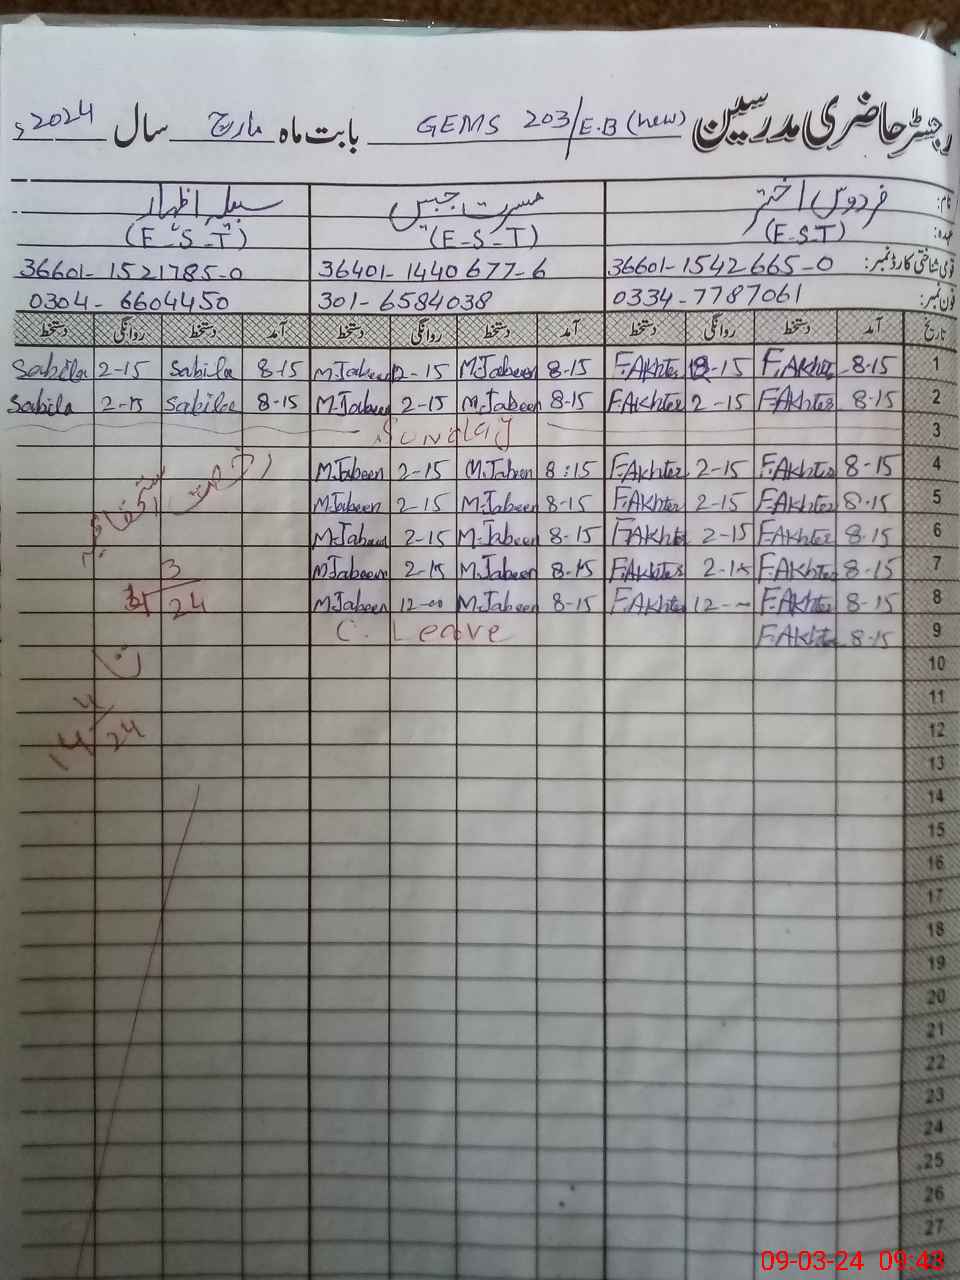 رجسٹر حاضری مدرسین GEMS 203/E.B (new) بابت ماہ مارچ سال 2024ء
نام: فردوس اختر مسرت جبیں سبیلہ اظہار
عہدہ: (E-S-T) (E-S-T) (E-S-T)
قومی شناختی کارڈ نمبر: 36601-1542665-0 36401-1440677-6 36601-1521785-0
فون نمبر: 0334-7787061 301-6584038 0304-6604450
تاریخ آمد دستخط روانگی دستخط آمد دستخط روانگی دستخط آمد دستخط روانگی دستخط
1 8-15 F.Akhter 2-15 F.Akhter 8-15 M.Jabeen 2-15 M.Jabeen 8-15 Sabila 2-15 Sabila
2 8-15 F.Akhter 2-15 F.Akhter 8-15 M.Jabeen 2-15 M.Jabeen 8-15 Sabila 2-15 Sabila
3 Sunday
4 8-15 F.Akhter 2-15 F.Akhter 8:15 M.Jabeen 2-15 M.Jabeen رخصت
5 8-15 F.Akhter 2-15 F.Akhter 8-15 M.Jabeen 2-15 M.Jabeen
6 8-15 F.Akhter 2-15 F.Akhter 8-15 M.Jabeen 2-15 M.Jabeen
7 8-15 F.Akhter 2-15 F.Akhter 8-15 M.Jabeen 2-15 M.Jabeen 3
8 8-15 F.Akhter 12-00 F.Akhter 8-15 M.Jabeen 12-00 M.Jabeen 24
9 8-15 F.Akhter C. Leave
10 تا
11 4
12 14 24
13
14
15
16
17
18
19
20
21
22
23
24
25
26
27
28
09-03-24 09:43